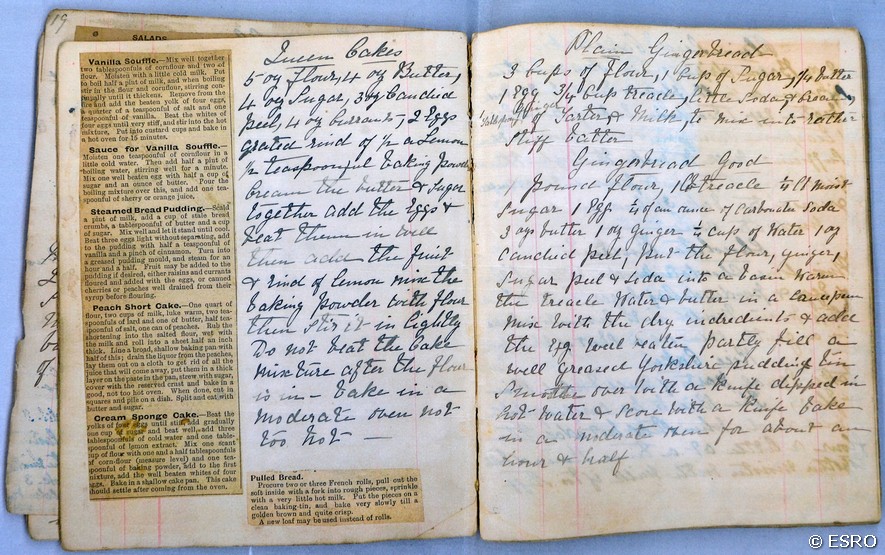 19
SALADS
Vanilla Souffle.—Mix well together
two tablespoonfuls of cornflour and two of
flour. Moisten with a little cold milk. Put
to boil half a pint of milk, and when boiling
stir in the flour and cornflour, stirring con-
tinually until it thickens. Remove from the
fire and add the beaten yolk of four eggs,
a quarter of a teaspoonful of salt and one
teaspoonful of vanilla. Beat the whites of
four eggs until very stiff, and stir into the hot
mixture. Put into custard cups and bake in
a hot oven for 15 minutes.
Sauce for Vanilla Souffle.—
Moisten one teaspoonful of cornflour in a
little cold water. Then add half a pint of
boiling water, stirring well for a minute.
Mix one well beaten egg with half a cup of
sugar and an ounce of butter. Pour the
boiling mixture over this, and add one tea-
spoonful of sherry or orange juice.
Steamed Bread Pudding.—Scald
a pint of milk, add a cup of stale bread
crumbs, a tablespoonful of butter and a cup
of sugar. Mix well and let it stand until cool.
Beat three eggs light without separating, add
to the pudding with half a teaspoonful of
vanilla and a pinch of cinnamon. Turn into
a greased pudding mould, and steam for an
hour and a half. Fruit may be added to the
pudding if desired, either raisins and currants
floured and added with the eggs, or canned
cherries or peaches well drained from their
syrup before flouring.
Peach Short Cake.—One quart of
flour, two cups of milk, luke warm, two tea-
spoonfuls of lard and one of butter, half tea-
spoonful of salt, one can of peaches. Rub the
shortening into the salted flour, wet with
the milk and roll into a sheet half an inch
thick. Line a broad, shallow baking pan with
half of this; drain the liquor from the peaches,
lay them out on a cloth to get rid of all the
juice that will come away, put them in a thick
layer on the paste in the pan, strew with sugar,
cover with the reserved crust and bake in a
good, not too hot oven. When done, cut in
squares and pile on a dish. Split and eat with
butter and sugar.
Cream Sponge Cake.—Beat the
yolks of until stiff, add gradually
one cup sugar and beat well, add three
tablespoonfuls of cold water and one table-
spoonful of lemon extract. Mix one scant
cup of flour with one and a half tablespoonfuls
of corn-flour (measure level) and one tea-
spoonful of baking powder, add to the first
mixture, add the well beaten whites of four
eggs. Bake in a shallow cake pan. This cake
should settle after coming from the oven.
Queen Cakes
5 oz flour, 4 oz Butter,
4 oz Sugar, 3 oz Candied
peel, 4 oz currants, 2 Eggs
grated rind of ½ a Lemon
½ teaspoonful baking powder
Cream the butter & Sugar
together add the Eggs &
beat them in well
then add the fruit
& rind of lemon mix the
baking powder with flour
then stir it in lightly
Do not beat the cake
mixture after the flour
is in — bake in a
moderate oven not
too hot —
Pulled Bread.
Procure two or three French rolls, pull out the
soft inside with a fork into rough pieces, sprinkle
with a very little hot milk. Put the pieces on a
clean baking-tin, and bake very slowly till a
golden brown and quite crisp.
A new loaf may be used instead of rolls.
Plain Gingerbread
3 cups of flour, 1 cup of Sugar, ¼ butter
1 Egg ¾ Cup treacle, little Soda & Cream
of Tarter & Milk, to mix into rather
stiff batter
Gingerbread Good
1 pound flour, 1 lb treacle ¼ lb moist
Sugar 1 Egg ¼ of an ounce of Carbonate Soda
3 ozs butter 1 oz ginger ½ cup of Water 1 oz
candied peel, put the flour, ginger,
sugar peel & soda into a basin warm
the treacle water & butter in a saucepan
mix with the dry ingredients & add
the egg well beaten partly fill a
well greased Yorkshire pudding tin
Smooth over with a knife dipped in
hot water & score with a knife bake
in a moderate oven for about an
hour & half
© ESRO